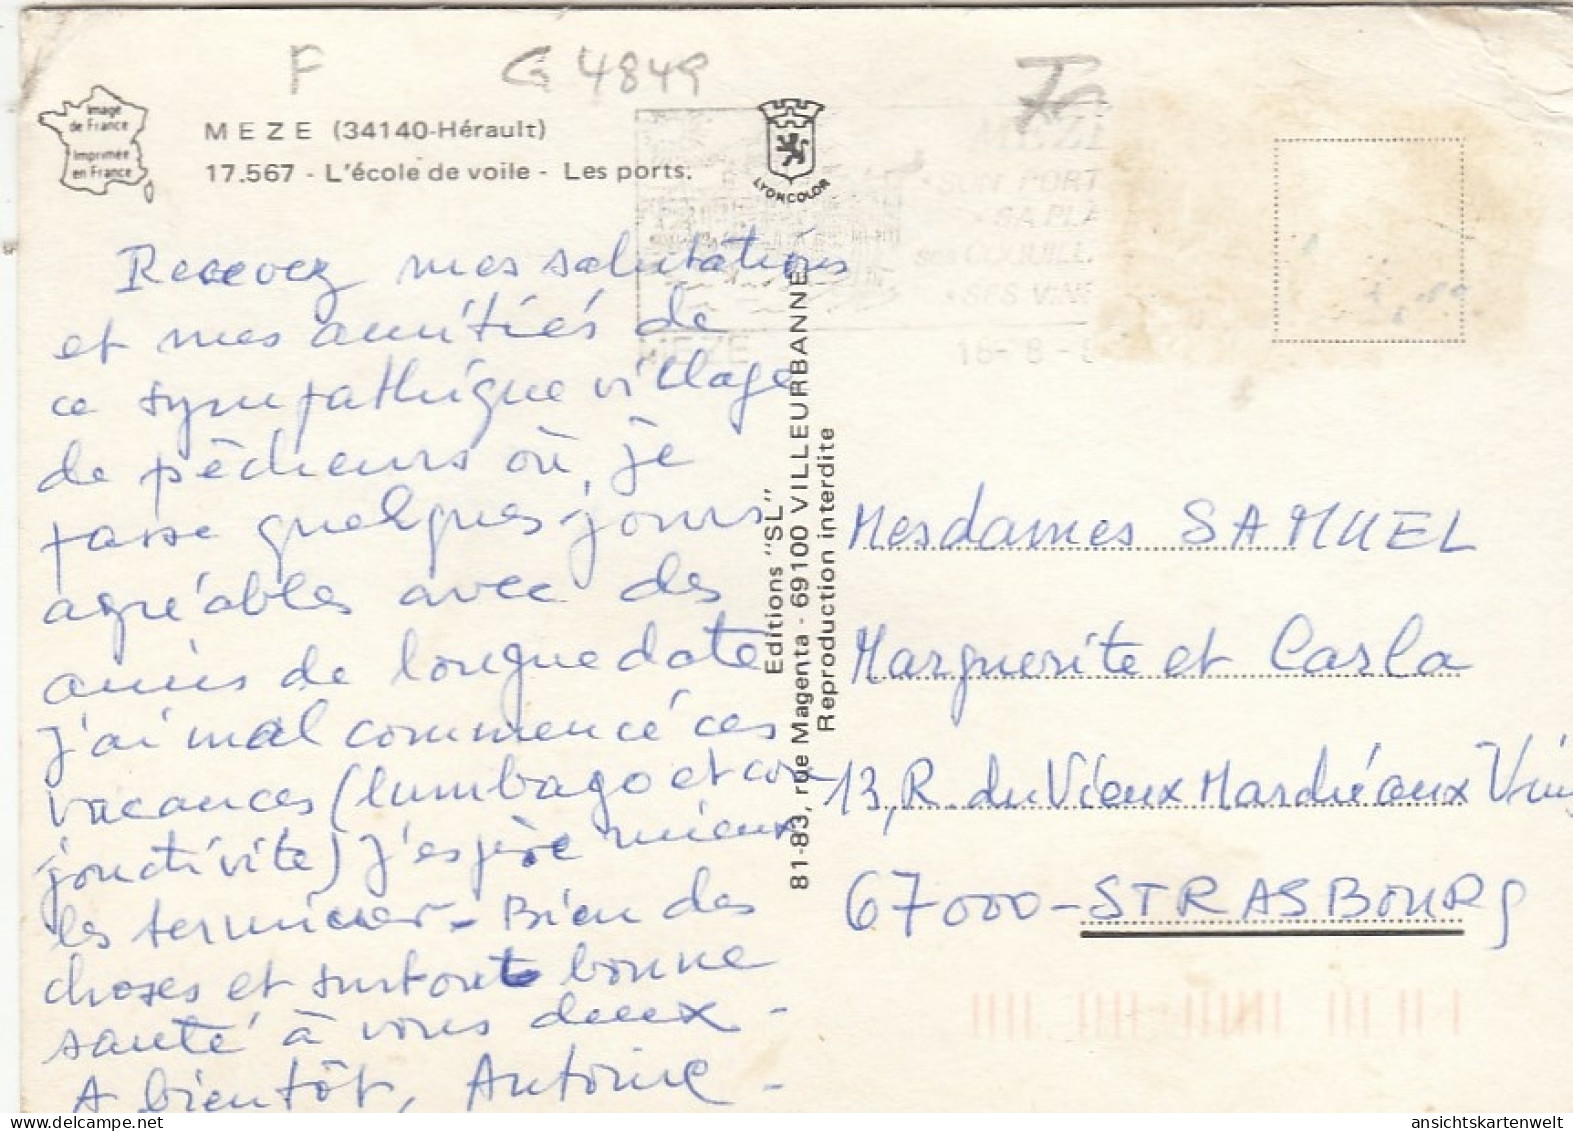 F G 4849
Image
de France
Imprimée
en France
MEZE (34140-Hérault)
17.567 - L'école de voile - Les ports.
LYONCOLOR
MEZE
SON PORT
SA PLA
ses COQUILL
SES VINS
MEZE
16-8-8
Recevez mes salutations
et mes amitiés de
ce sympathique village
de pêcheurs où je
passe quelques jours
agréables avec des
amis de longue date
J'ai mal commencé ces
vacances (lumbago et con-
jonctivite) J'espère mieux
les terminer - Bien des
choses et surtout bonne
santé à vous deux -
A bientôt, Antoine -
Editions "SL"
81-83, rue Magenta - 69100 VILLEURBANNE
Reproduction interdite
Mesdames SAMUEL
Marguerite et Carla
13, R. du Vieux Marché aux Vins
67000 - STRASBOURG
ansichtskartenwelt.com